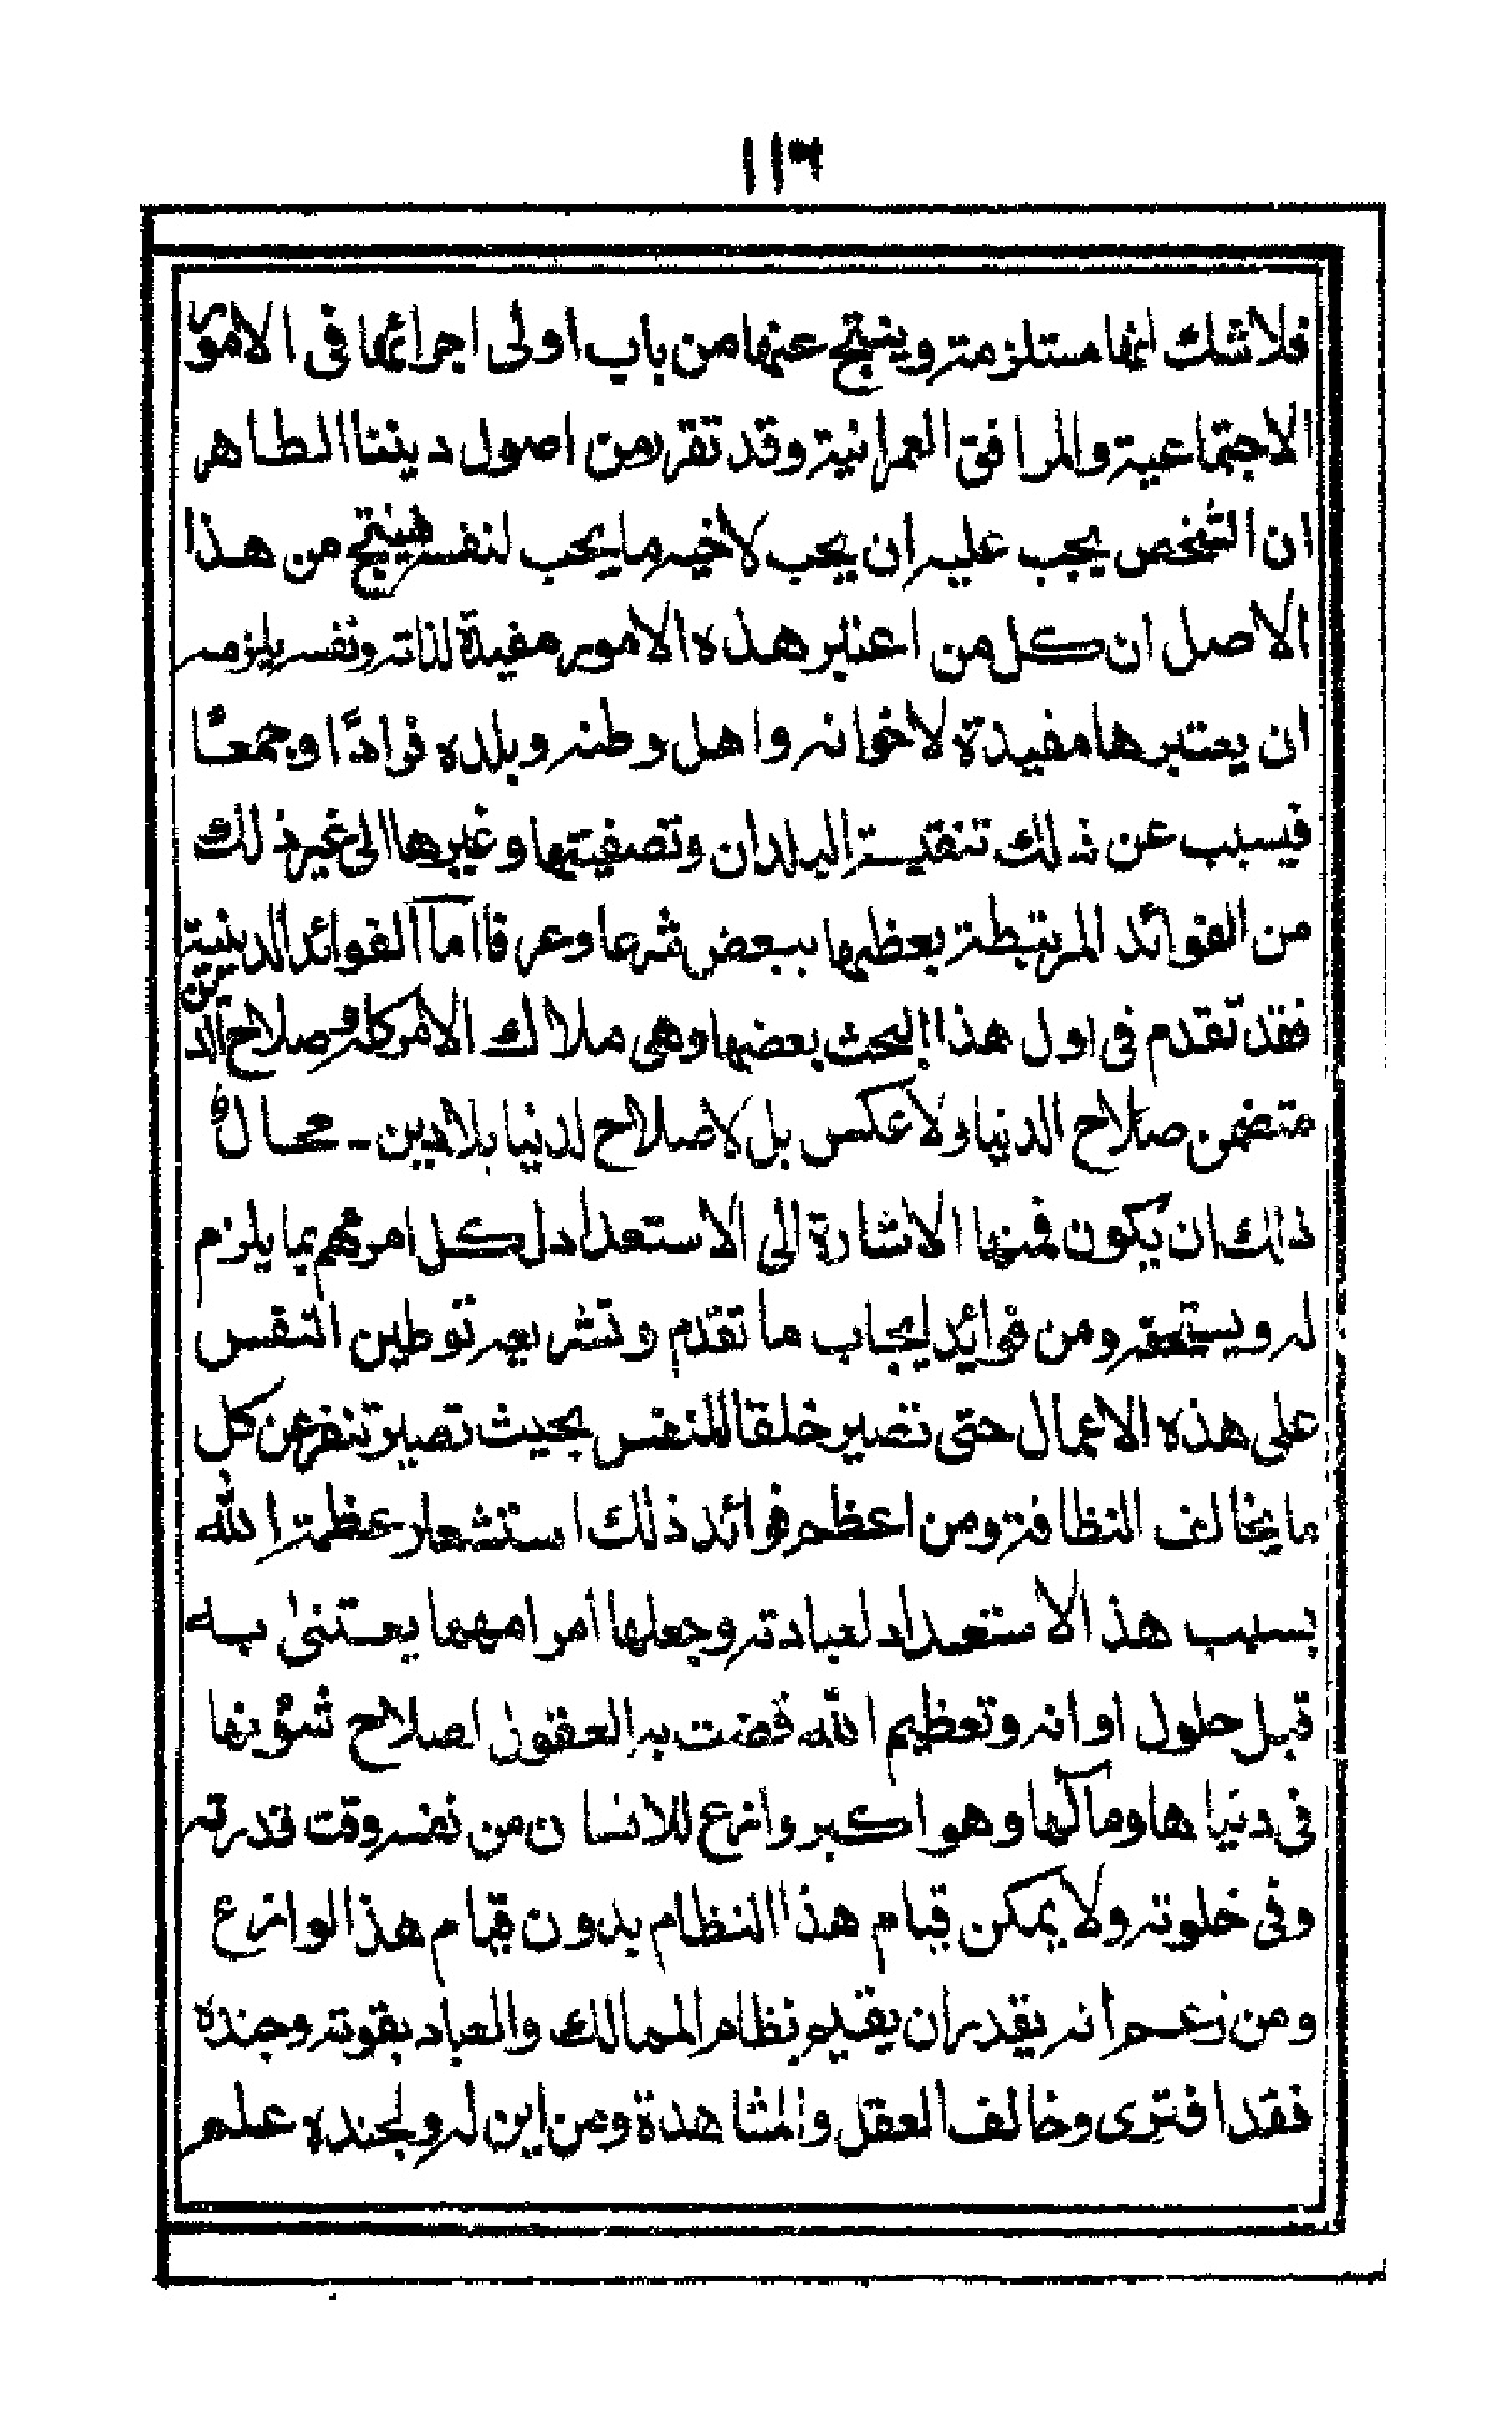 ١١٦
فلاشك انها مستلزمة وينتج عنها من باب اولى اجرائها فى الامور
الاجتماعية والمرافق العمرانية وقد تقرر من اصول ديننا الطاهر
ان الشخص يجب عليه ان يحب لاخيه ما يحب لنفسه فينتج من هذا
الاصل ان كل من اعتبر هذه الامور مفيدة لذاته ونفسه يلزمه
ان يعتبرها مفيدة لاخوانه واهل وطنه وبلده فرادًا وجمعًا
فيسبب عن ذلك تنقية البلدان وتصفيتها وغيرها الى غير ذلك
من الفوائد المرتبطة بعظها ببعض شرعا وعرفا امّا الفوائد الدينية
فقد تقدم فى اول هذا البحث بعضها وهى ملاك الامر كله وصلاح الدين
متضمن صلاح الدنيا ولا عكس بل لا صلاح لدنيا بلا دين - محال و
ذلك ان يكون فمنها الاشارة الى الاستعداد لكل امر مهم بما يلزم
له ويستحقه ومن فوائد ايجاب ما تقدم وتشريعه توطين النفس
على هذه الاعمال حتى تصير خلقا للنفس بحيث تصير تنفر عن كل
ما يخالف النظافة ومن اعظم فوائد ذلك استشعار عظمة الله
بسبب هذ الاستعداد لعبادته وجعلها امرا مهما يعتنى به
قبل حلول اوانه وتعظيم الله قضت به العقول اصلاح شؤنها
فى دنياها ومآلها وهو اكبر وازع للانسان من نفسه وقت قدرته
وفى خلوته ولا يمكن قيام هذا النظام بدون قيام هذا الوازع
ومن زعم أنه يقدر ان يقيم نظام الممالك والعباد بقوته وجنده
فقد افترى وخالف العقل والمشاهدة ومن اين له ولجنده علم